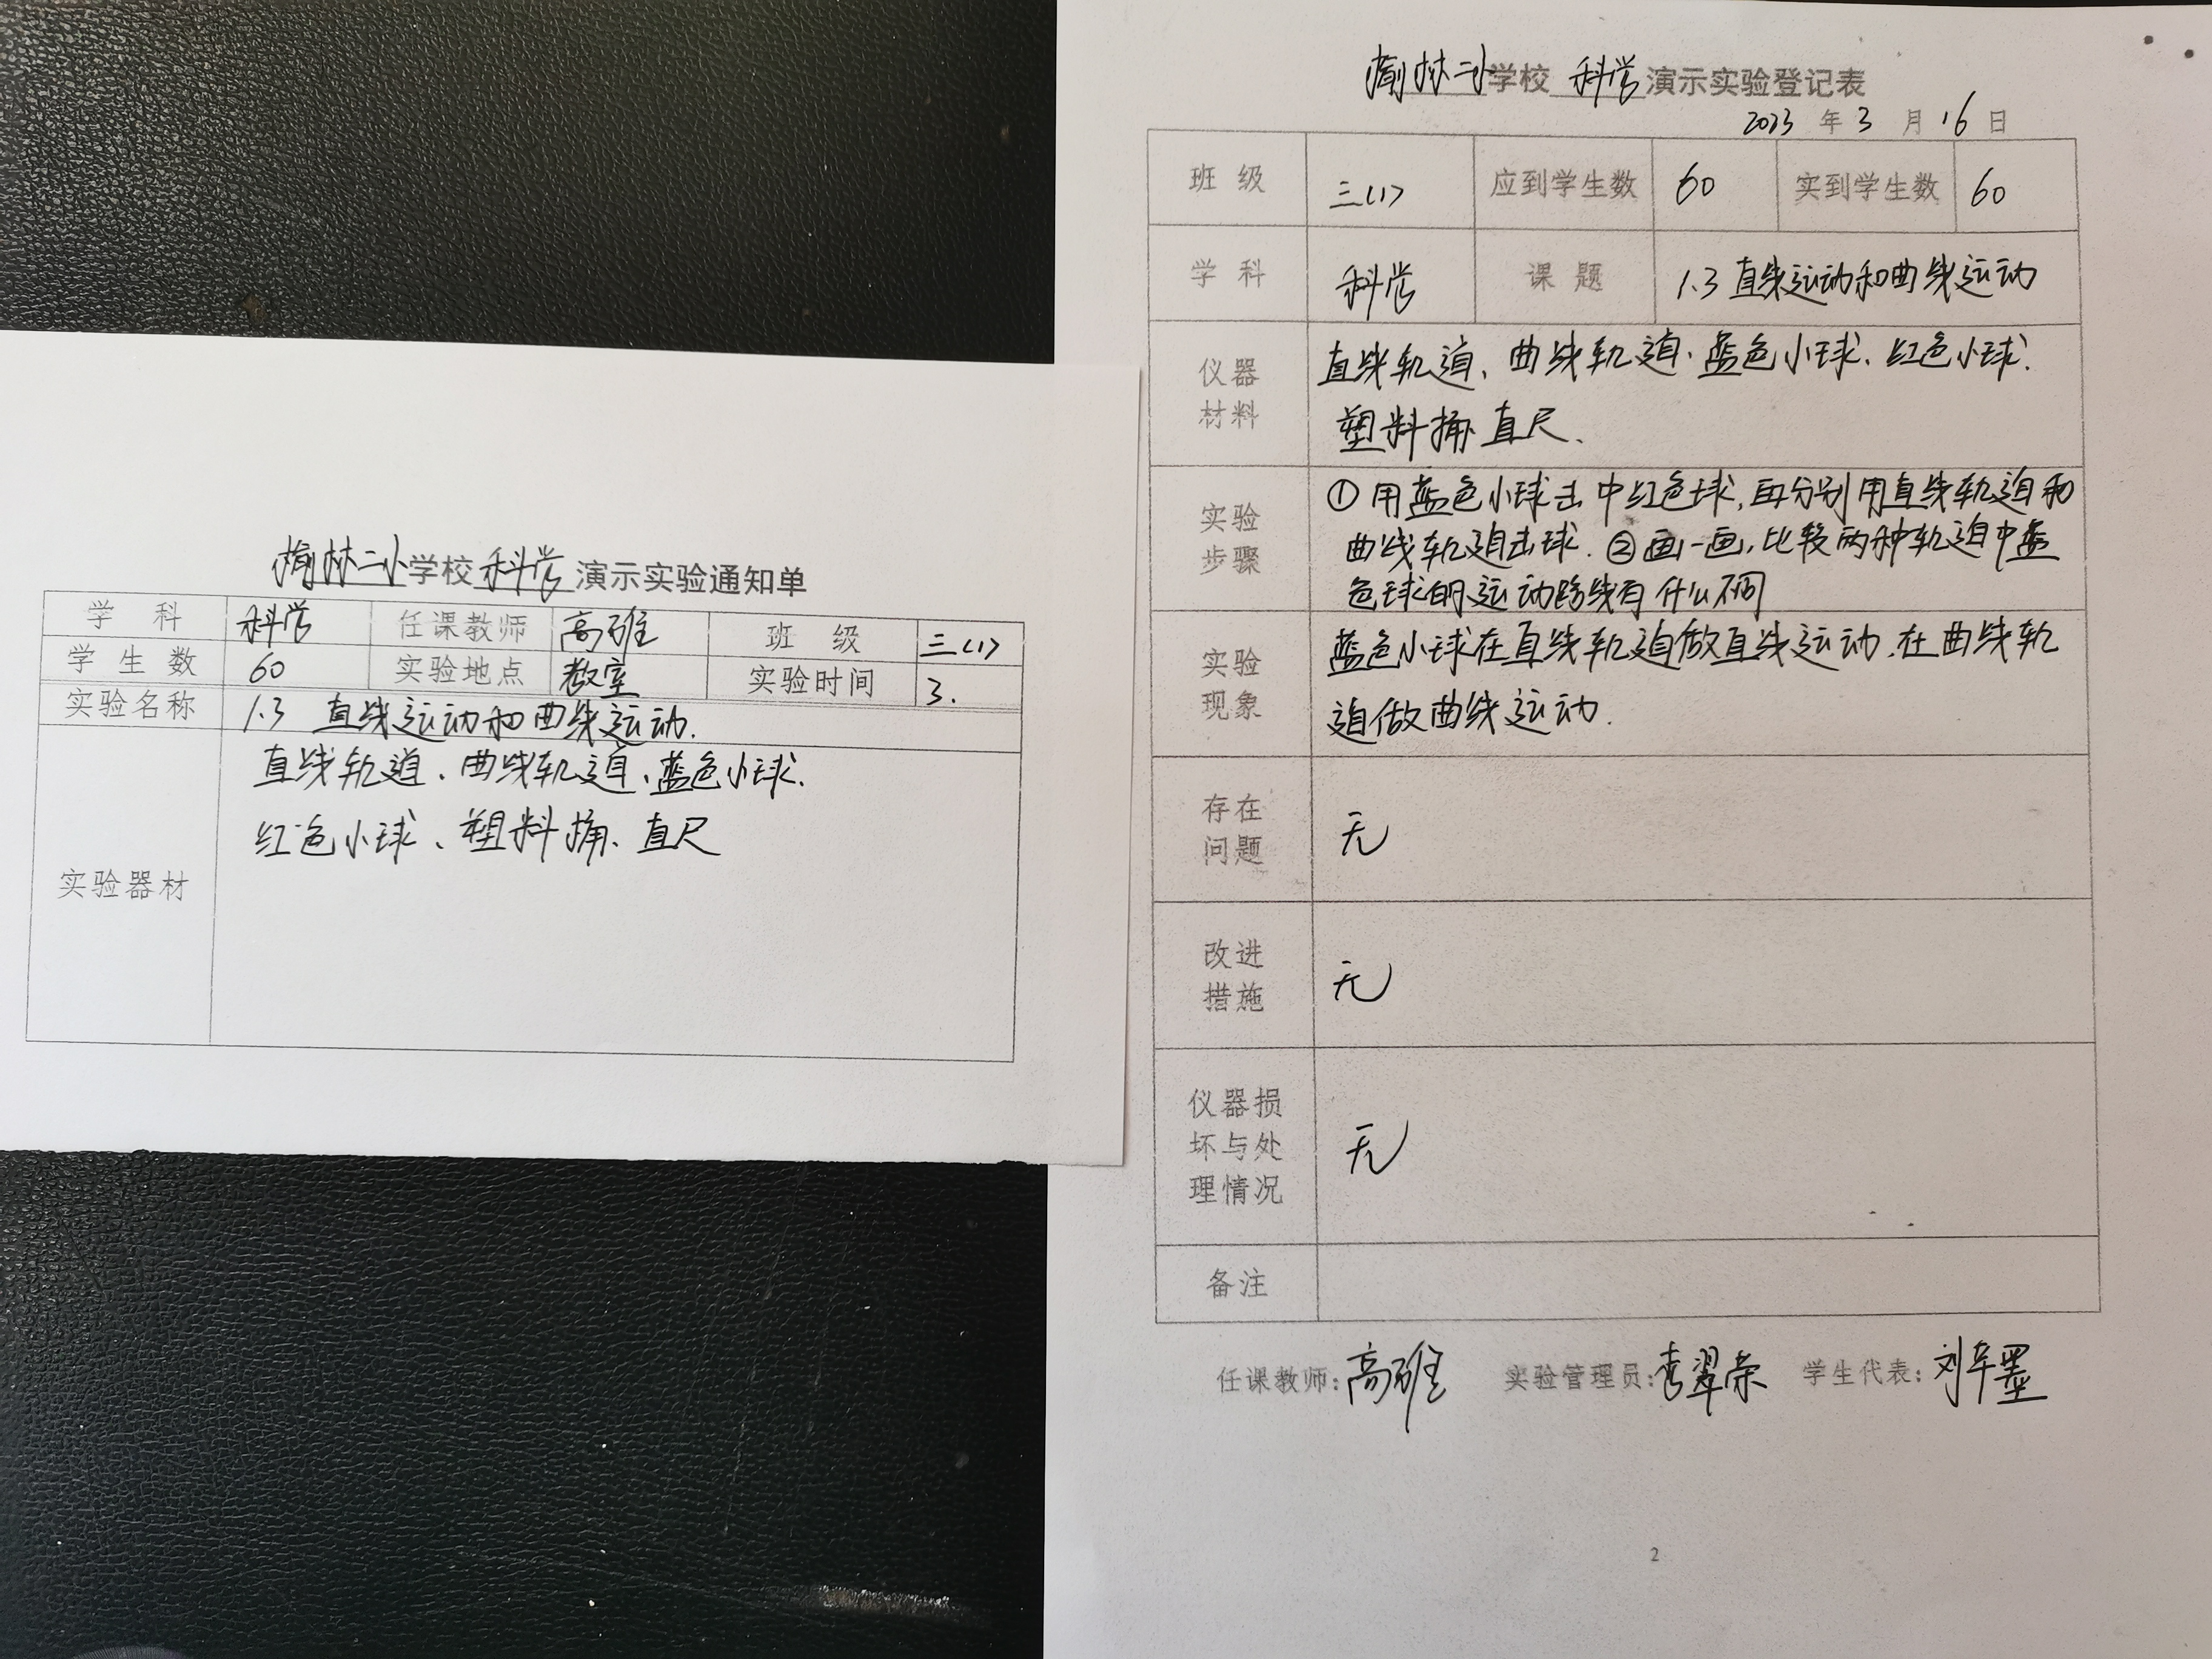 榆林二小学校 科学 演示实验通知单
学 科 科学 任课教师 高雅 班 级 三(1)
学 生 数 60 实验地点 教室 实验时间 3.
实验名称 1.3 直线运动和曲线运动.
直线轨道、曲线轨道、蓝色小球、
红色小球、塑料桶、直尺
实验器材
榆林二小学校 科学 演示实验登记表
2023 年 3 月 16 日
班 级 三(1) 应到学生数 60 实到学生数 60
学 科 科学 课 题 1.3 直线运动和曲线运动
仪器
材料
直线轨道、曲线轨道、蓝色小球、红色小球、
塑料桶 直尺、
实验
步骤
① 用蓝色小球击中红色球,再分别用直线轨道和
曲线轨道击球. ②画一画,比较两种轨道中蓝
色球的运动路线有什么不同
实验
现象
蓝色小球在直线轨道做直线运动,在曲线轨
道做曲线运动.
存在
问题
无
改进
措施
无
仪器损
坏与处
理情况
无
备注
任课教师:高雅 实验管理员: 翠荣 学生代表:刘 墨
2